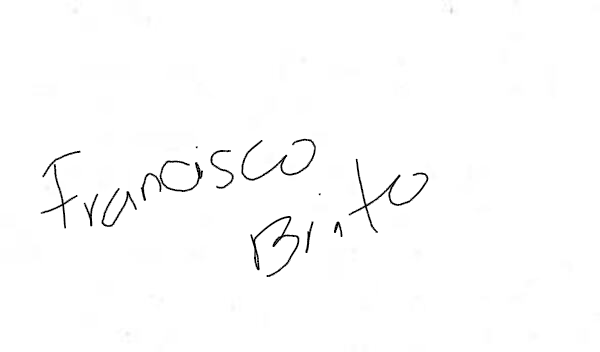 Francisco
Brito